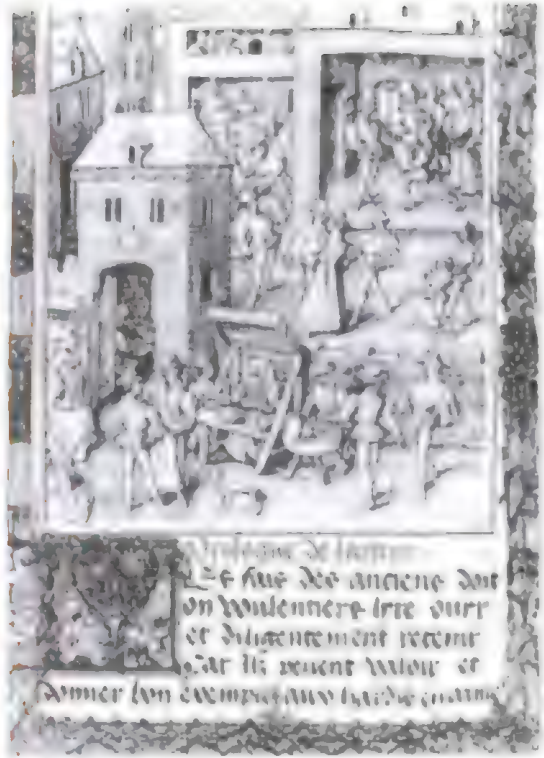 es fais des anciens doit
on voulentiers lire ouir
et diligentement retenir
Car ilz peuent valoir et
donner bon exemple aux hardis